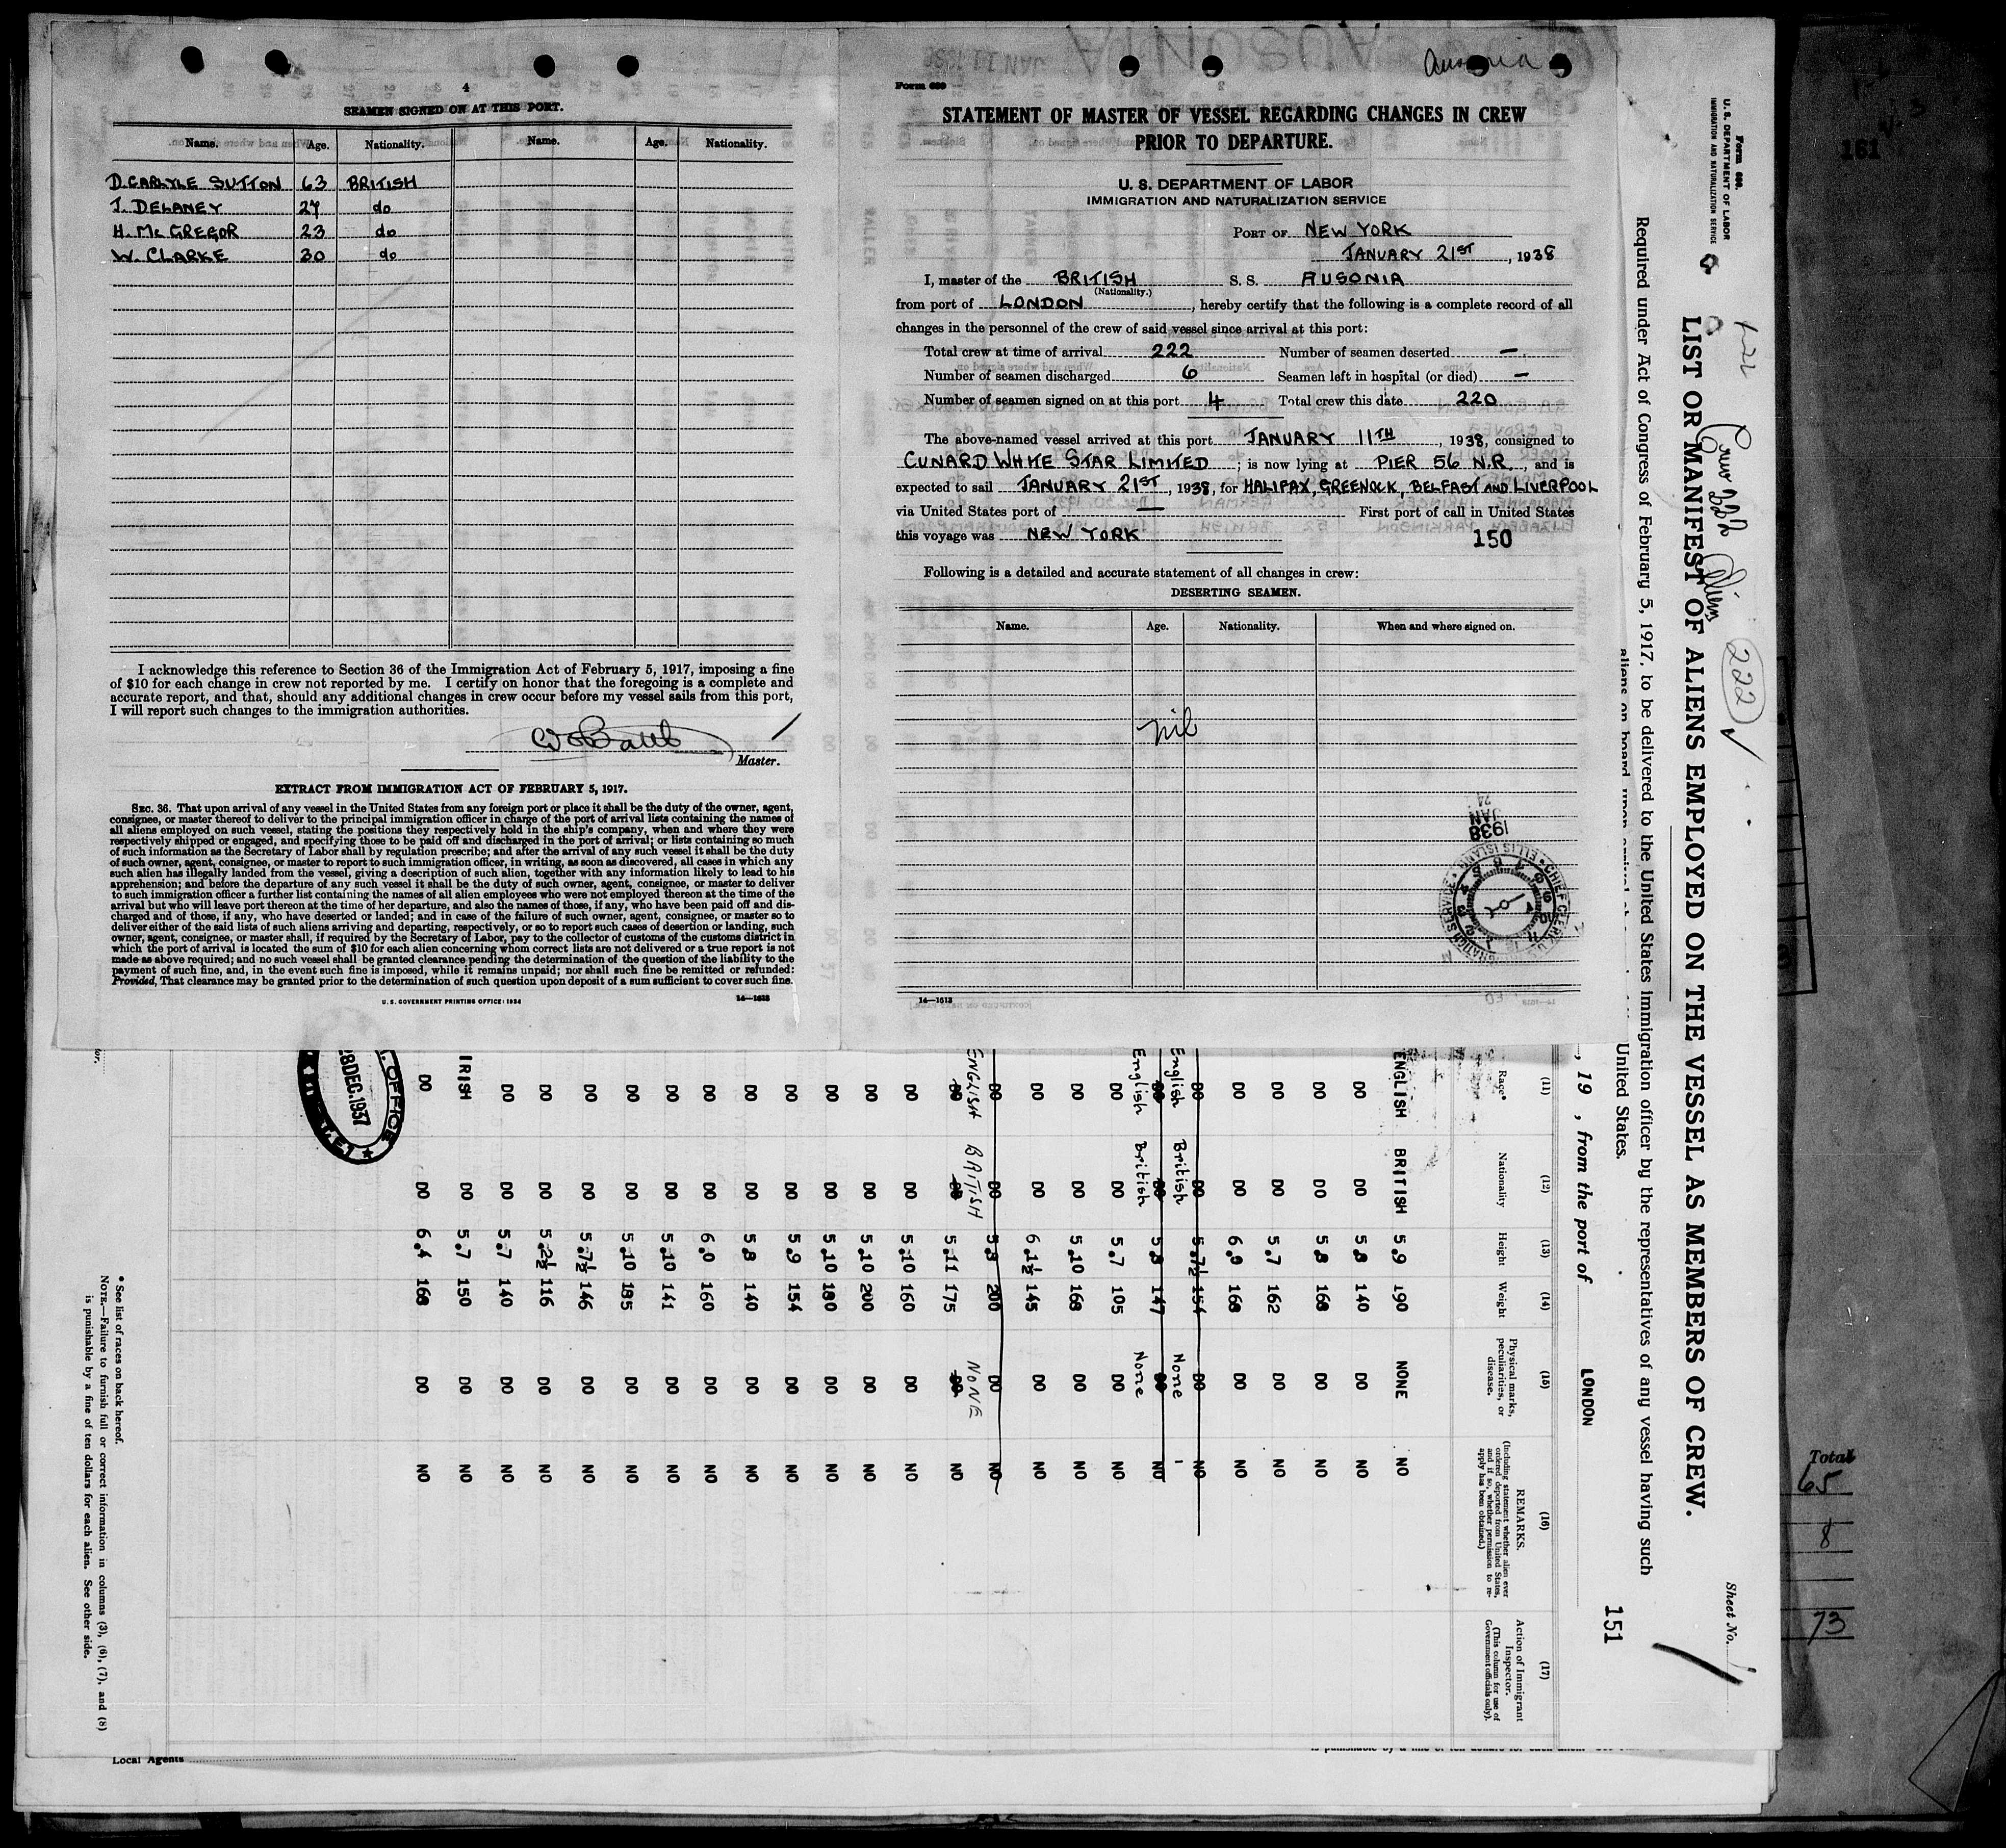 4
SEAMEN SIGNED ON AT THIS PORT.
Name. Age. Nationality. Name. Age. Nationality.
D. CARLYLE SUTTON 63 BRITISH
J. DELANEY 27 do
H. Mc GREGOR 23 do
W. CLARKE 30 do
I acknowledge this reference to Section 36 of the Immigration Act of February 5, 1917, imposing a fine
of $10 for each change in crew not reported by me. I certify on honor that the foregoing is a complete and
accurate report, and that, should any additional changes in crew occur before my vessel sails from this port,
I will report such changes to the immigration authorities.
Master.
EXTRACT FROM IMMIGRATION ACT OF FEBRUARY 5, 1917.
SEC. 36. That upon arrival of any vessel in the United States from any foreign port or place it shall be the duty of the owner, agent,
consignee, or master thereof to deliver to the principal immigration officer in charge of the port of arrival lists containing the names of
all aliens employed on such vessel, stating the positions they respectively hold in the ship's company, when and where they were
respectively shipped or engaged, and specifying those to be paid off and discharged in the port of arrival; or lists containing so much
of such information as the Secretary of Labor shall by regulation prescribe; and after the arrival of any such vessel it shall be the duty
of such owner, agent, consignee, or master to report to such immigration officer, in writing, as soon as discovered, all cases in which any
such alien has illegally landed from the vessel, giving a description of such alien, together with any information likely to lead to his
apprehension; and before the departure of any such vessel it shall be the duty of such owner, agent, consignee, or master to deliver
to such immigration officer a further list containing the names of all alien employees who were not employed thereon at the time of the
arrival but who will leave port thereon at the time of her departure, and also the names of those, if any, who have been paid off and dis-
charged and of those, if any, who have deserted or landed; and in case of the failure of such owner, agent, consignee, or master so to
deliver either of the said lists of such aliens arriving and departing, respectively, or so to report such cases of desertion or landing, such
owner, agent, consignee, or master shall, if required by the Secretary of Labor, pay to the collector of customs of the customs district in
which the port of arrival is located the sum of $10 for each alien concerning whom correct lists are not delivered or a true report is not
made as above required; and no such vessel shall be granted clearance pending the determination of the question of the liability to the
payment of such fine, and, in the event such fine is imposed, while it remains unpaid; nor shall such fine be remitted or refunded:
Provided, That clearance may be granted prior to the determination of such question upon deposit of a sum sufficient to cover such fine.
U. S. GOVERNMENT PRINTING OFFICE: 1934 14—1613
Ausonia
Form 689
STATEMENT OF MASTER OF VESSEL REGARDING CHANGES IN CREW
PRIOR TO DEPARTURE.
U. S. DEPARTMENT OF LABOR
IMMIGRATION AND NATURALIZATION SERVICE
PORT OF NEW YORK
JANUARY 21ST, 1938
I, master of the BRITISH S. S. AUSONIA
(Nationality.)
from port of LONDON, hereby certify that the following is a complete record of all
changes in the personnel of the crew of said vessel since arrival at this port:
Total crew at time of arrival 222 Number of seamen deserted —
Number of seamen discharged 6 Seamen left in hospital (or died) —
Number of seamen signed on at this port 4 Total crew this date 220
The above-named vessel arrived at this port JANUARY 11TH, 1938, consigned to
CUNARD WHITE STAR LIMITED; is now lying at PIER 56 N.R., and is
expected to sail JANUARY 21ST, 1938, for HALIFAX, GREENOCK, BELFAST AND LIVERPOOL
via United States port of — First port of call in United States
this voyage was NEW YORK 150
Following is a detailed and accurate statement of all changes in crew:
DESERTING SEAMEN.
Name. Age. Nationality. When and where signed on.
nil
1938
JAN
24
14—1613
Form 689.
U. S. DEPARTMENT OF LABOR
IMMIGRATION AND NATURALIZATION SERVICE
Crew 222 Aliens 222
Sheet No.
LIST OR MANIFEST OF ALIENS EMPLOYED ON THE VESSEL AS MEMBERS OF CREW.
Required under Act of Congress of February 5, 1917, to be delivered to the United States immigration officer by the representatives of any vessel having such
United States.
151
, 19 , from the port of LONDON
(11) (12) (13) (14) (15) (16) (17)
Race* Nationality Height Weight Physical marks, peculiarities, or disease. REMARKS. (Including statement whether alien ever ordered deported from United States, and if so, whether permission to re-apply has been obtained.) Action of Immigrant Inspector. (This column for use of Government officials only).
ENGLISH BRITISH 5.9 190 NONE NO
DO DO 5.8 140 DO NO
DO DO 5.8 168 DO NO
DO DO 5.7 162 DO NO
DO DO 6.0 168 DO NO
DO DO 5.7½ 154 DO NO
English British None
DO DO 5.8 147 DO NO
English British None
DO DO 5.7 105 DO NO
DO DO 5.10 168 DO NO
DO DO 6.1½ 145 DO NO
DO DO 5.8 200 DO NO
ENGLISH BRITISH NONE
DO DO 5.11 175 DO NO
DO DO 5.10 160 DO NO
DO DO 5.10 200 DO NO
DO DO 5.10 180 DO NO
DO DO 5.9 154 DO NO
DO DO 5.8 140 DO NO
DO DO 6.0 160 DO NO
DO DO 5.10 141 DO NO
DO DO 5.10 185 DO NO
DO DO 5.7½ 146 DO NO
DO DO 5.2½ 116 DO NO
DO DO 5.7 140 DO NO
IRISH DO 5.7 150 DO NO
DO DO 6.4 168 DO NO
OFFICE
28 DEC. 1937
* See list of races on back hereof.
NOTE.—Failure to furnish full or correct information in columns (3), (6), (7), and (8)
is punishable by a fine of ten dollars for each alien. See other side.
Local Agents
161
Total
65
8
73